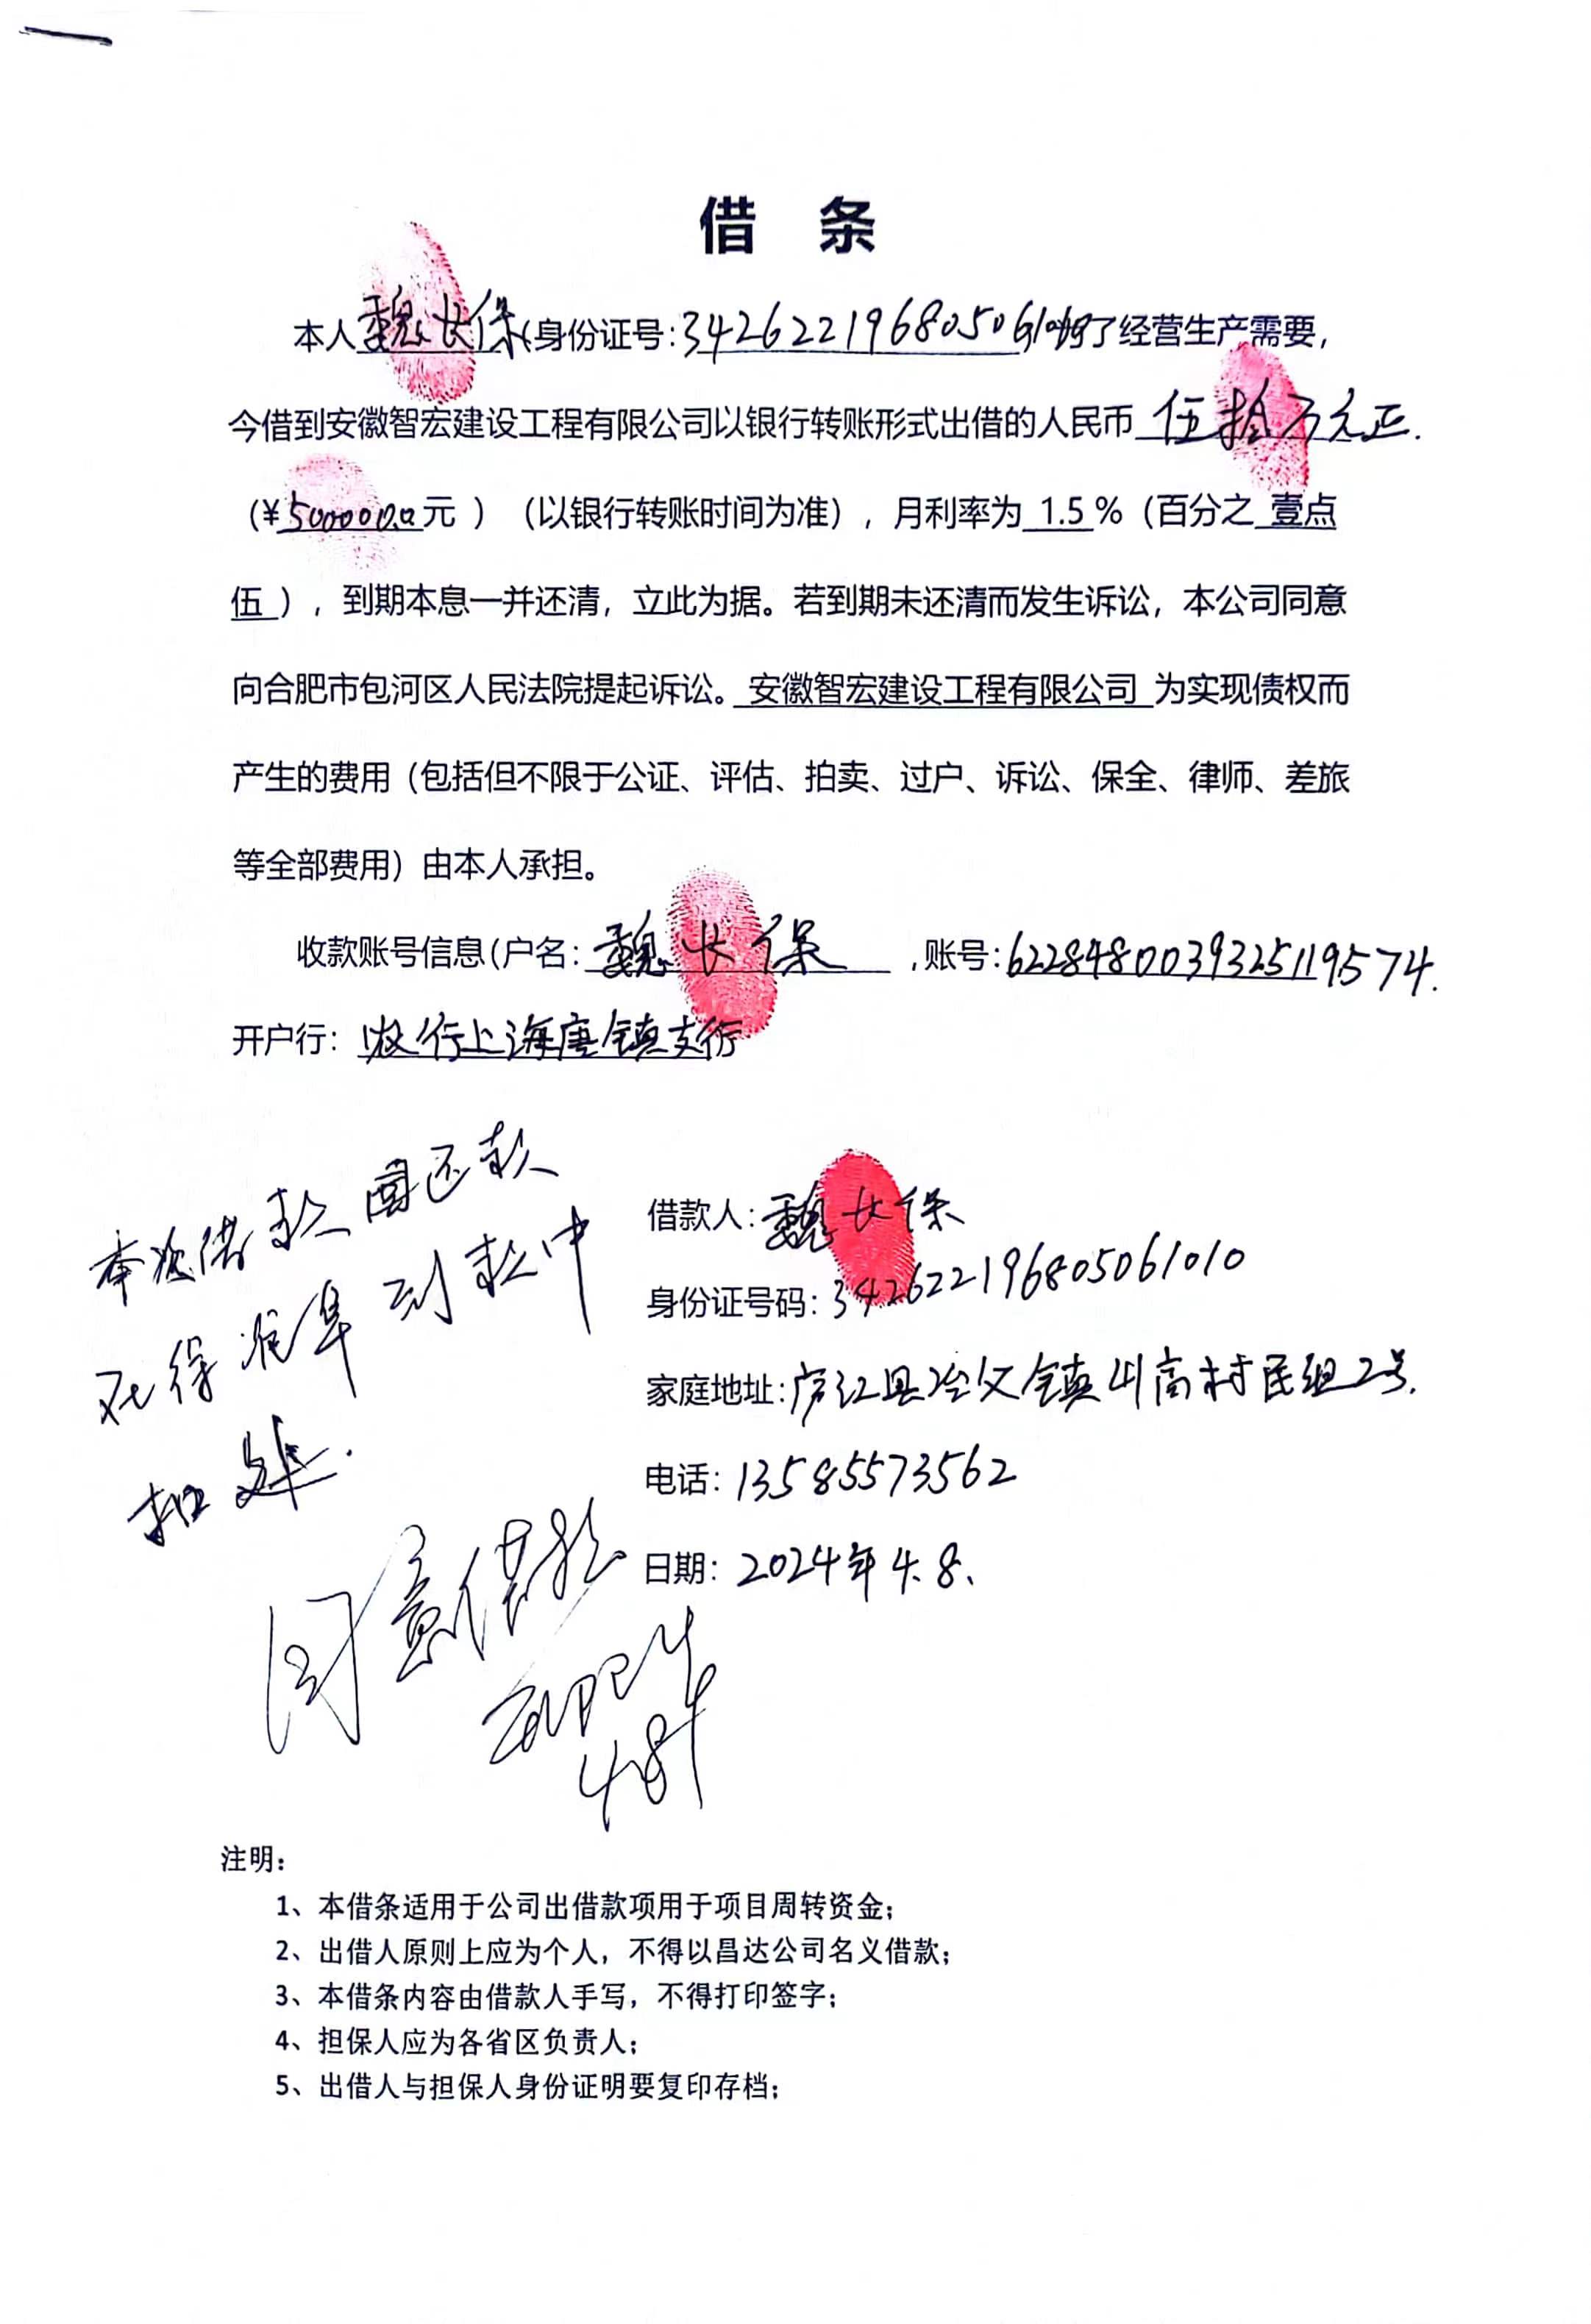 借 条
本人魏长保(身份证号:342622196805061010为了经营生产需要,
今借到安徽智宏建设工程有限公司以银行转账形式出借的人民币 伍拾万元正.
(¥500000.00元 ) (以银行转账时间为准),月利率为 1.5 %(百分之 壹点
伍 ),到期本息一并还清,立此为据。若到期未还清而发生诉讼,本公司同意
向合肥市包河区人民法院提起诉讼。 安徽智宏建设工程有限公司 为实现债权而
产生的费用(包括但不限于公证、评估、拍卖、过户、诉讼、保全、律师、差旅
等全部费用)由本人承担。
收款账号信息(户名: 魏长保 ,账号:6228480039325119574.
开户行: 农行上海唐镇支行
本次借款 还款
到款中
扣
同意借款
4.8
借款人:魏长保
身份证号码:342622196805061010
家庭地址:庐江县冶父镇 高村民组2号.
电话:13585573562
日期:2024年4.8.
注明:
1、本借条适用于公司出借款项用于项目周转资金;
2、出借人原则上应为个人,不得以昌达公司名义借款;
3、本借条内容由借款人手写,不得打印签字;
4、担保人应为各省区负责人;
5、出借人与担保人身份证明要复印存档;